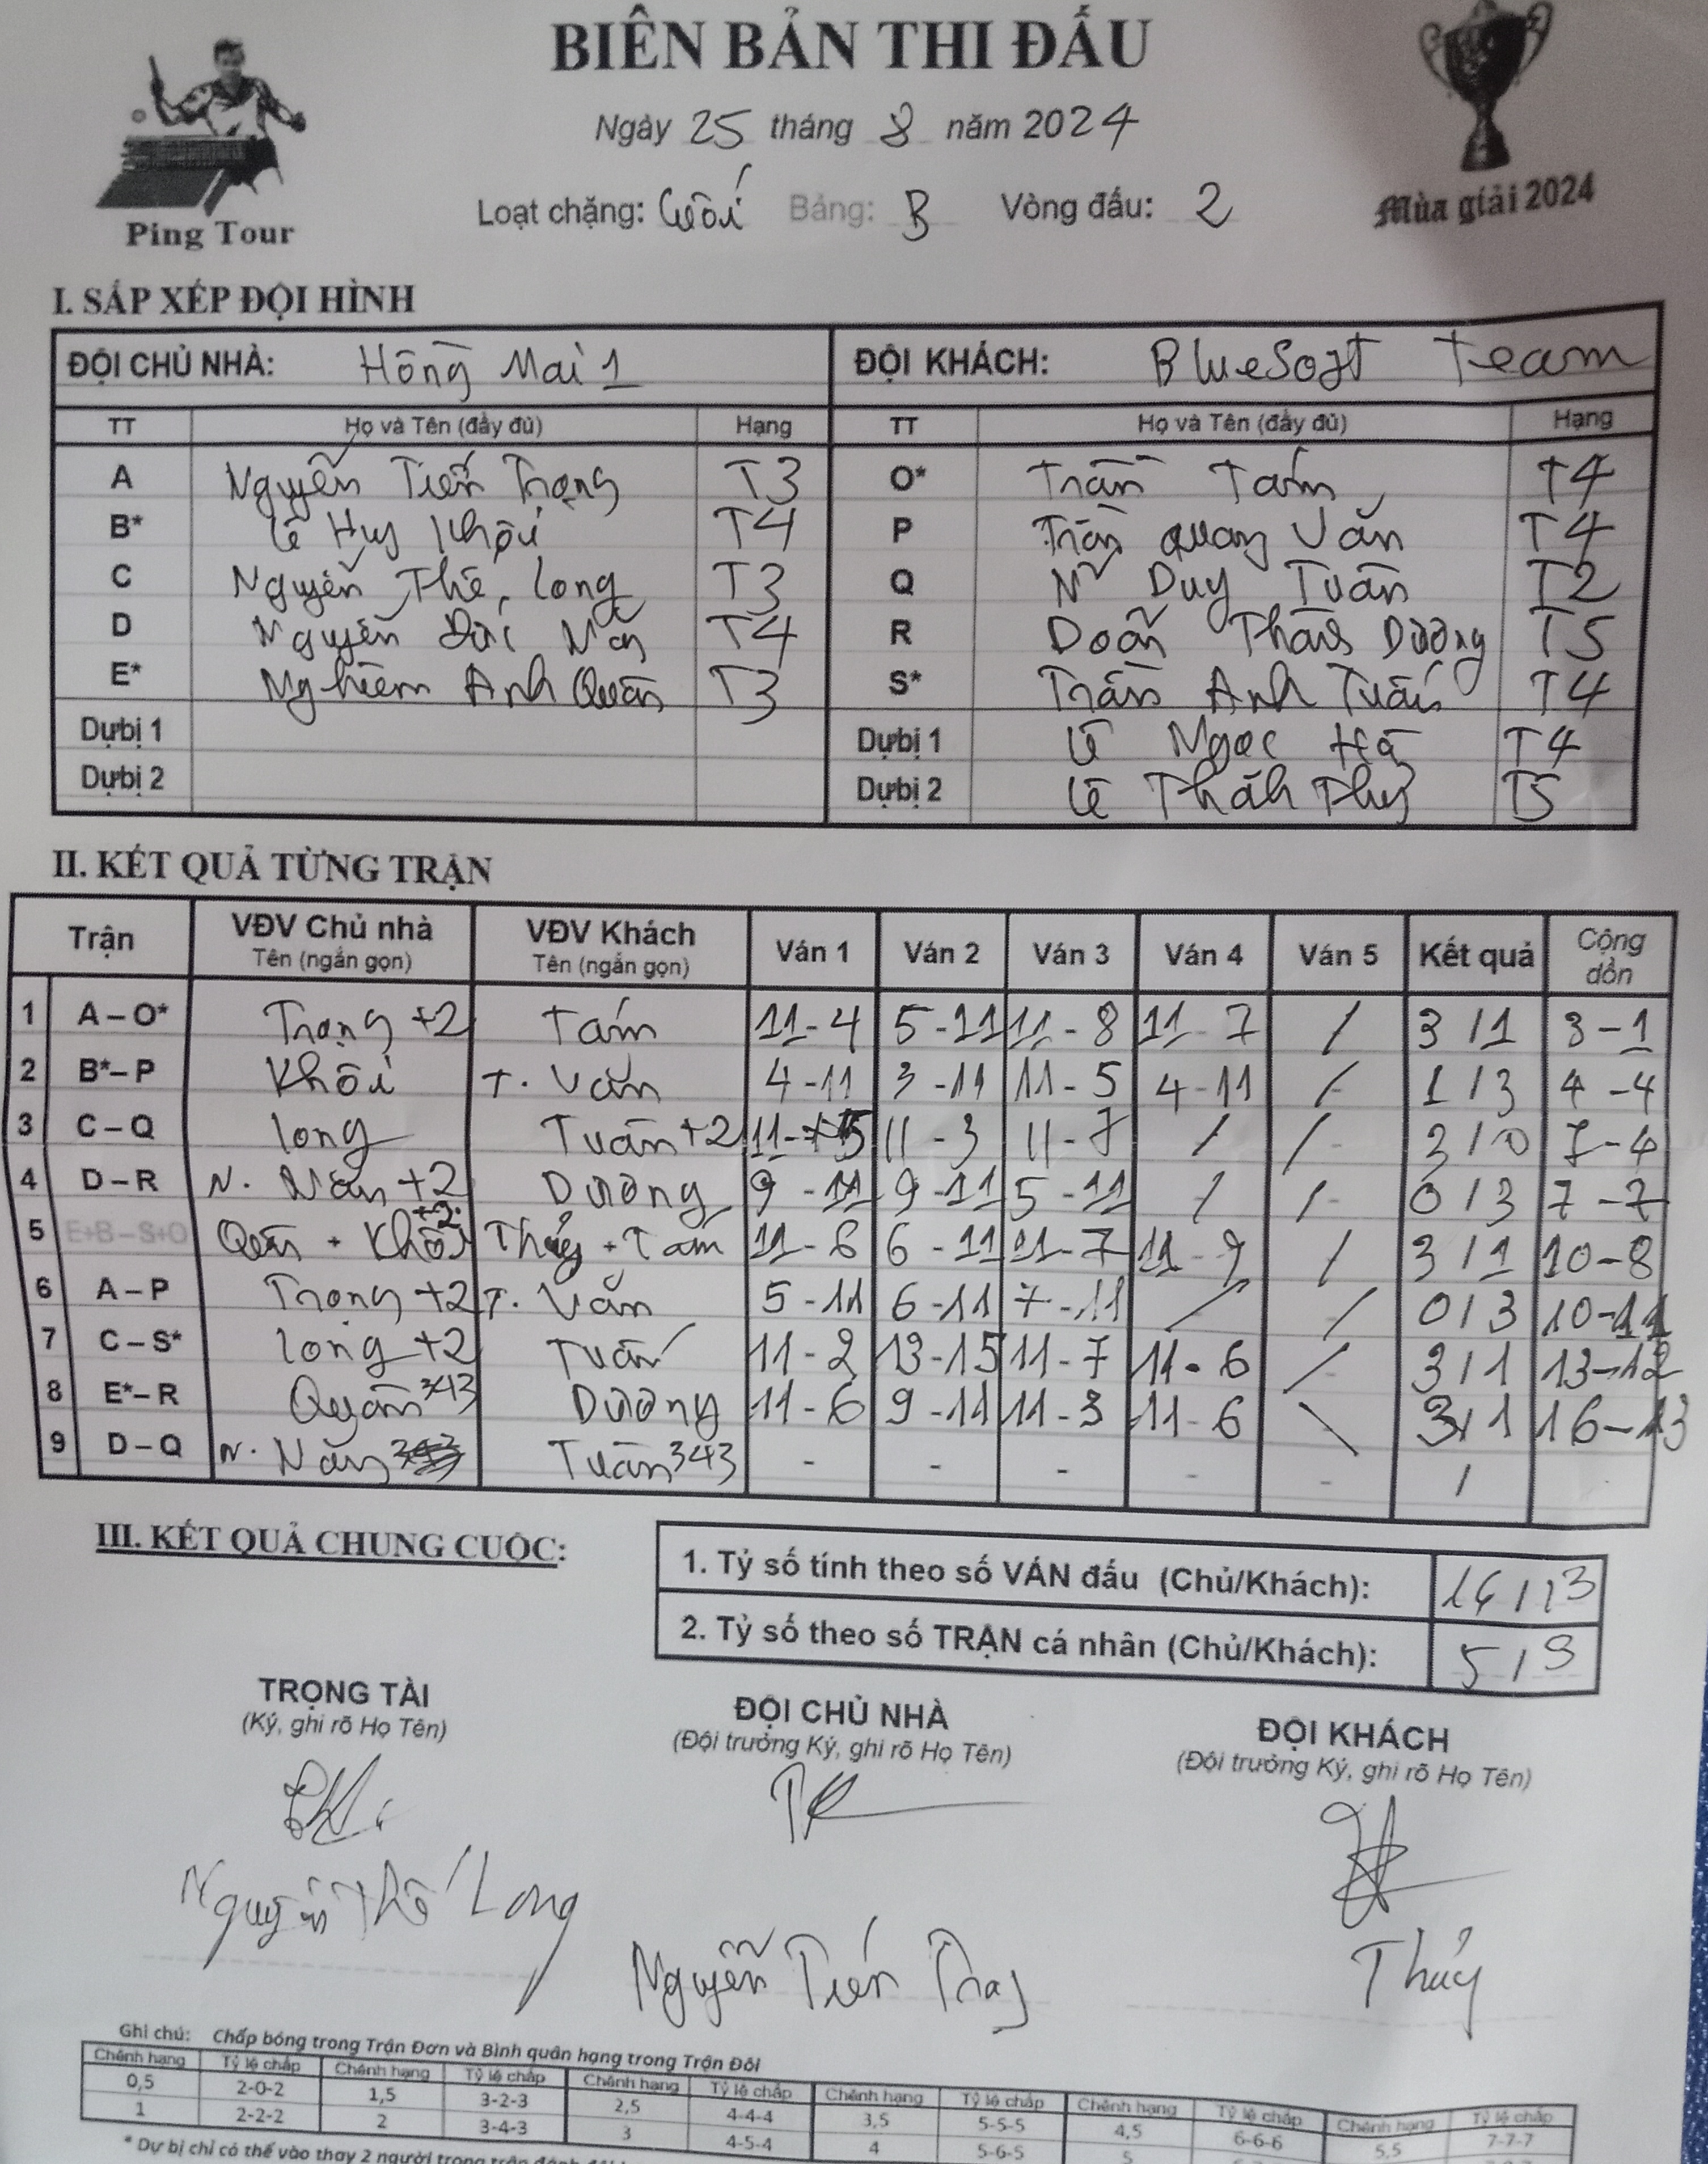 BIÊN BẢN THI ĐẤU
Ngày 25 tháng 8 năm 2024
Loạt chặng: Cuối Bảng: B Vòng đấu: 2
Ping Tour
Mùa giải 2024
I. SẮP XẾP ĐỘI HÌNH
ĐỘI CHỦ NHÀ: Hồng Mai 1 ĐỘI KHÁCH: BlueSoft Team
TT Họ và Tên (đầy đủ) Hạng TT Họ và Tên (đầy đủ) Hạng
A Nguyễn Tiến Trọng T3 O* Trần Tám T4
B* Lê Huy Khôi T4 P Trần Quang Văn T4
C Nguyễn Thế Long T3 Q Ng Duy Tuấn T2
D Nguyễn Đức Năng T4 R Doãn Thái Dương T5
E* Nghiêm Anh Quân T3 S* Trần Anh Tuấn T4
Dự bị 1 Dự bị 1 Lê Ngọc Hà T4
Dự bị 2 Dự bị 2 Lê Thanh Thuỷ T5
II. KẾT QUẢ TỪNG TRẬN
Trận VĐV Chủ nhà VĐV Khách Ván 1 Ván 2 Ván 3 Ván 4 Ván 5 Kết quả Cộng dồn
Tên (ngắn gọn) Tên (ngắn gọn)
1 A – O* Trọng +2 Tám 11-4 5-11 11-8 11-7 / 3/1 3-1
2 B* – P Khôi T. Văn 4-11 3-11 11-5 4-11 / 1/3 4-4
3 C – Q Long Tuấn +2 11-5 11-3 11-7 / / 3/0 7-4
4 D – R N. Năng +2 Dương 9-11 9-11 5-11 / / 0/3 7-7
5 E+B – S+O Quân + Khôi +2 Thủy + Tám 11-6 6-11 11-7 11-9 / 3/1 10-8
6 A – P Trọng +2 T. Văn 5-11 6-11 7-11 / / 0/3 10-11
7 C – S* Long +2 Tuấn 11-2 13-15 11-7 11-6 / 3/1 13-12
8 E* – R Quân 343 Dương 11-6 9-11 11-3 11-6 \ 3/1 16-13
9 D – Q N. Năng Tuấn 343 - - - - - /
III. KẾT QUẢ CHUNG CUỘC:
1. Tỷ số tính theo số VÁN đấu (Chủ/Khách): 16/13
2. Tỷ số theo số TRẬN cá nhân (Chủ/Khách): 5/3
TRỌNG TÀI ĐỘI CHỦ NHÀ ĐỘI KHÁCH
(Ký, ghi rõ Họ Tên) (Đội trưởng Ký, ghi rõ Họ Tên) (Đội trưởng Ký, ghi rõ Họ Tên)
Nguyễn Thế Long Nguyễn Tiến Trọng Thủy
Ghi chú: Chấp bóng trong Trận Đơn và Bình quân hạng trong Trận Đôi
Chênh hạng Tỷ lệ chấp Chênh hạng Tỷ lệ chấp Chênh hạng Tỷ lệ chấp Chênh hạng Tỷ lệ chấp Chênh hạng Tỷ lệ chấp Chênh hạng Tỷ lệ chấp
0,5 2-0-2 1,5 3-2-3 2,5 4-4-4 3,5 5-5-5 4,5 6-6-6 5,5 7-7-7
1 2-2-2 2 3-4-3 3 4-5-4 4 5-6-5 5
* Dự bị chỉ có thể vào thay 2 người trong trận đánh đôi